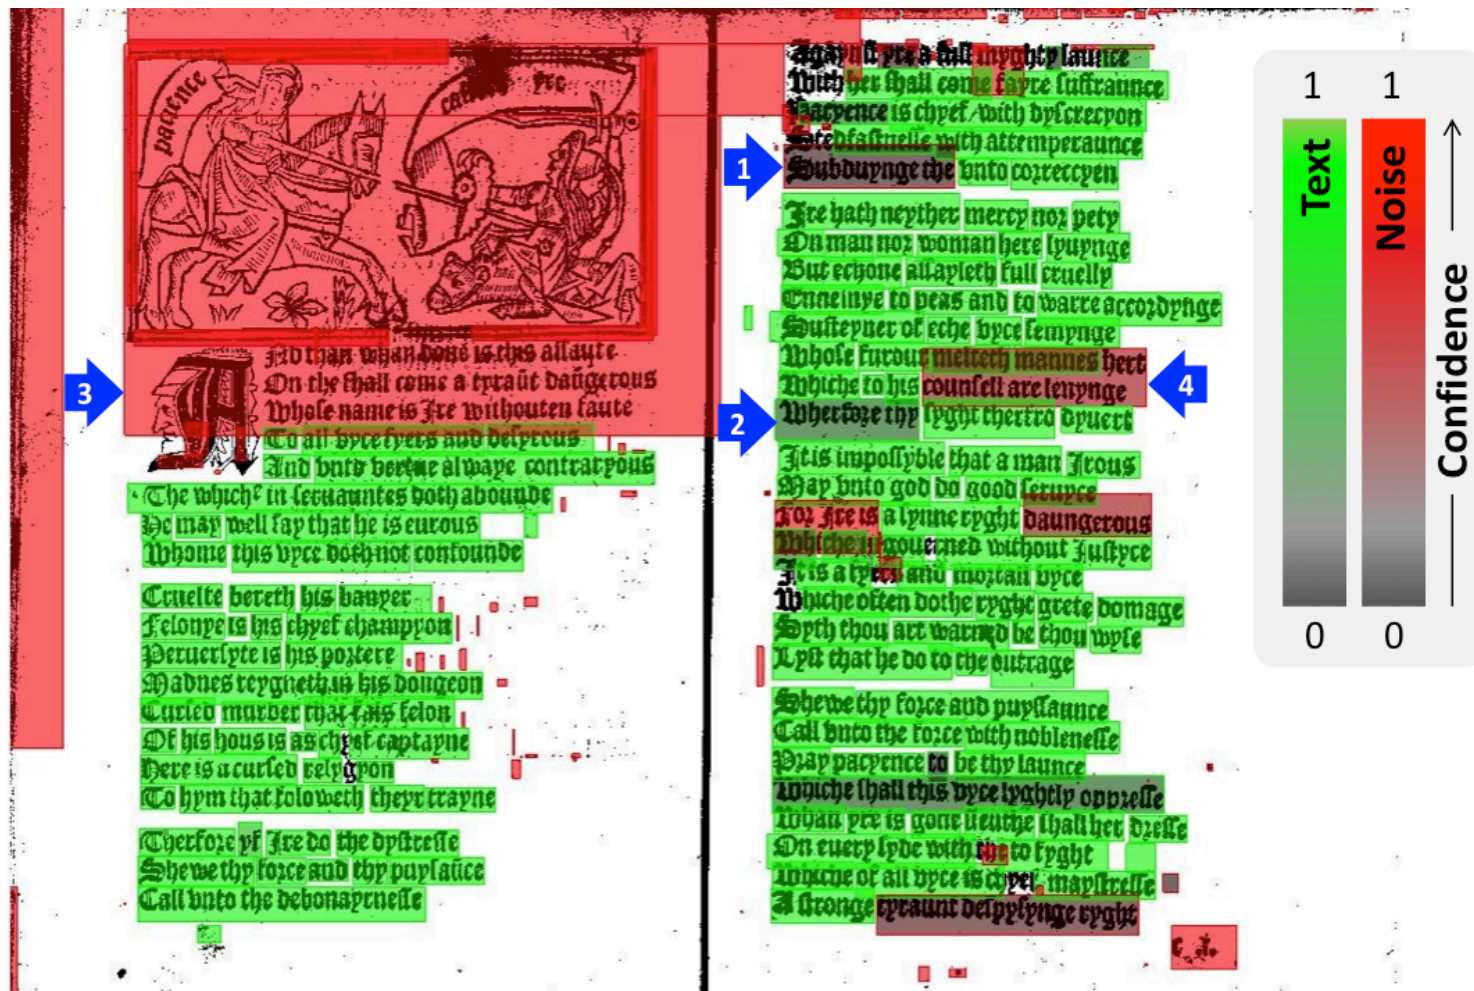 pacyence
yre
Nd than whan done is this assaute
On the shall come a tyraūt daūgerous
Whose name is Ire withouten faute
To all vyce fyers and desyrous
And vnto vertue alwaye contraryous
The whiche in seruauntes doth abounde
He may well say that he is eurous
Whome this vyce doth not confounde
Cruelte bereth his banyer
Felonye is his chyef champyon
Peruersyte is his portere
Madnes reygneth in his dongeon
Cursed murder that fals felon
Of his hous is as chyef captayne
Here is a cursed relygyon
To hym that foloweth theyr trayne
Therfore yf Ire do the dystresse
Shewe thy force and thy puysaūce
Call vnto the debonayrnesse
Agaynst yre a full myghty launce
With her shall come fayre suffraunce
Pacyence is chyef / with dyscrecyon
Stedfastnesse with attemperaunce
Subduynge the vnto correccyen
Ire hath neyther mercy nor pety
On man nor woman here lyuynge
But echone assayleth full cruelly
Ennemye to peas and to warre accordynge
Susteyner of eche vyce semynge
Whose furour melteth mannes hert
Whiche to his counsell are lenynge
Wherfore thy syght therfro dyuert
It is impossyble that a man Irous
May vnto god do good seruyce
For Ire is a synne ryght daungerous
Whiche is gouerned without Justyce
It is a fyers and mortall vyce
Whiche often dothe ryght grete domage
Syth thou art warned be thou wyse
Lyst that he do to the outrage
Shewe thy force and puyssaunce
Call vnto the force with noblenesse
Pray pacyence to be thy launce
Whiche shall this vyce lyghtly oppresse
Whan yre is gone thenthe shall her dresse
On euery syde with the to fyght
Whiche of all vyce is chyef maystresse
A stronge tyraunt despysynge ryght
c.j.
1
2
3
4
1 1
Text Noise
0 0
Confidence